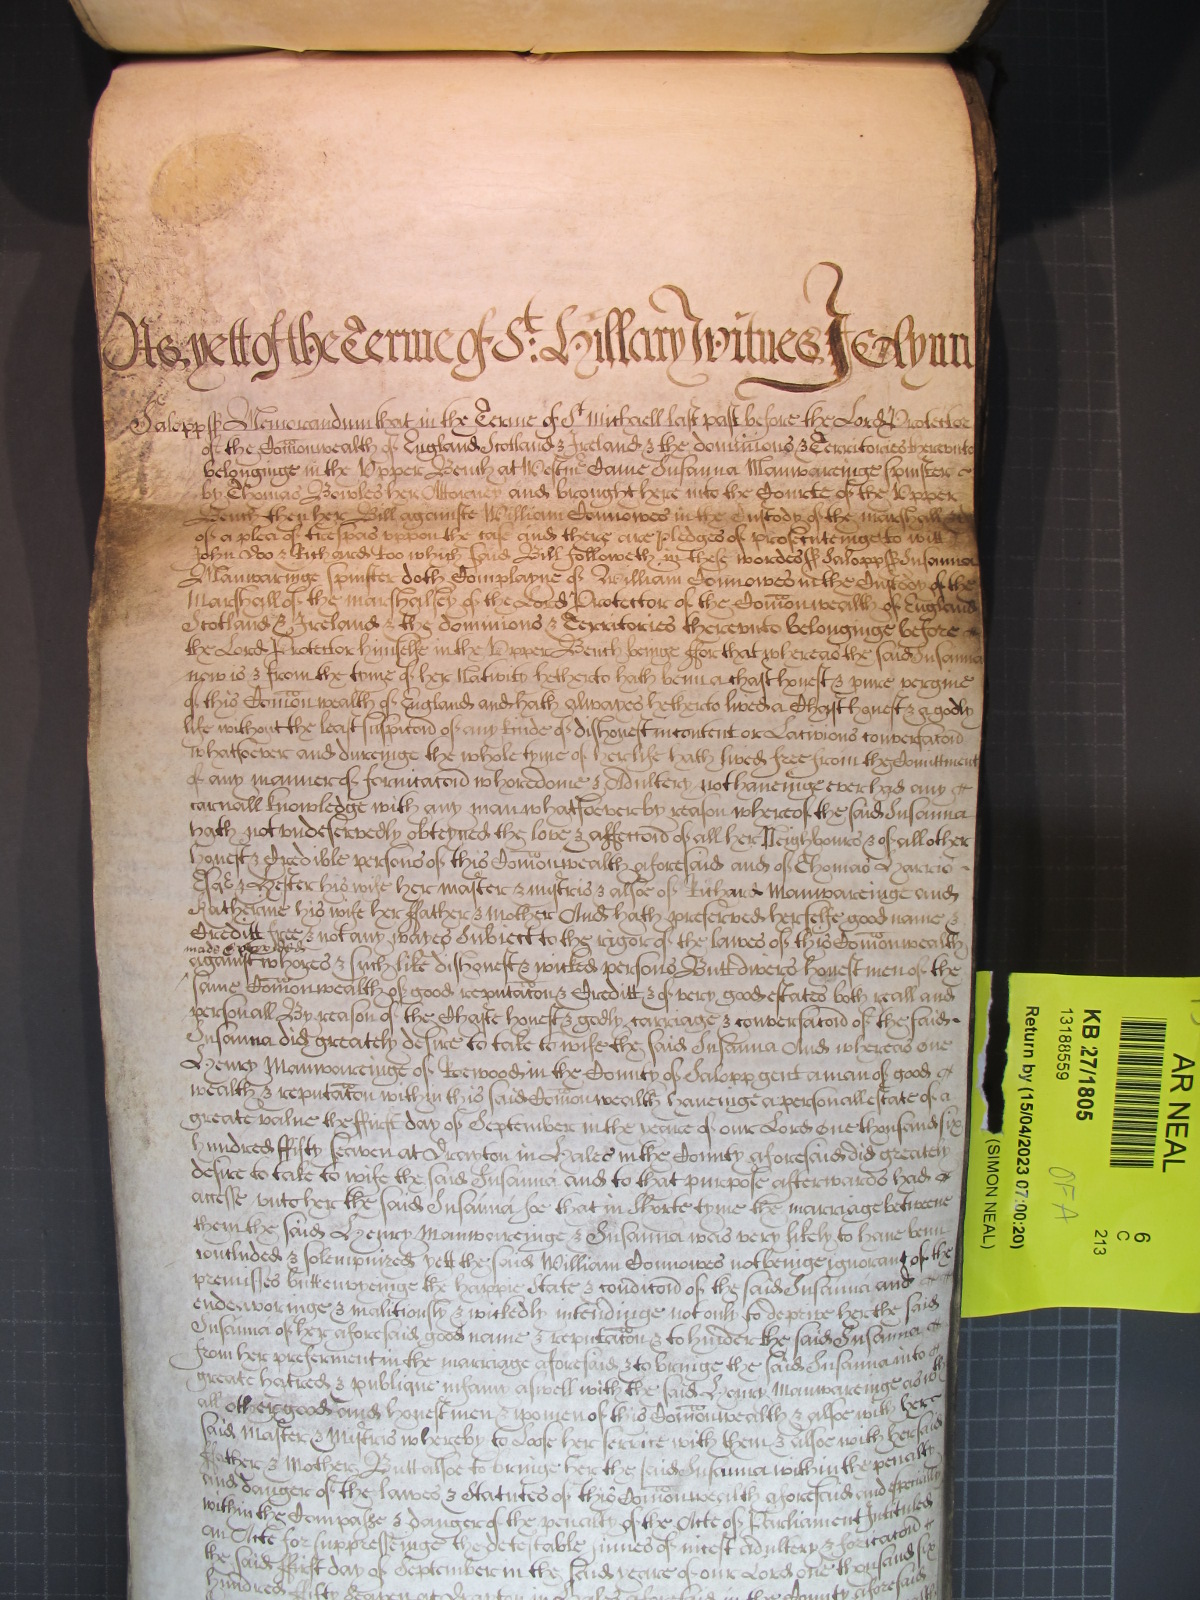 As yett of the Terme of St. Hillary Witnes J Glynn
Salopp ss Memorandum that in the Terme of St Michaell last past before the Lord Protector
of the Com̄onwealth of England Scotland & Ireland & the dominions & Territories thereunto
belonginge in the Upper Bench at Westmr Came Susanna Manwareinge Spinster
by Thomas Bowles her Attorney and brought here into the Courte of the Upper
Bench then her Bill againste William Connowes in the Custody of the marshall &c
of a plea of trespas uppon the case and there are pledges of prosecuteinge to witt
John Doo & Richard Roo which said Bill followeth in these wordes ss Salopp ss Susanna
Manwaringe Spinster doth Complayne of William Connowes in the Custody of the
Marshall of the marshalsey of the Lord Protector of the Com̄onwealth of England
Scotland & Ireland & the dominions & Territories thereunto belonginge before
the Lord Protector himselfe in the Upper Bench beinge ffor that whereas the said Susanna
now is & from the tyme of her Nativity hetherto hath benn a chast honest & pure vergine
of this Com̄onwealth of England and hath alwayes hetherto lived a Chast honest & a godly
life without the least suspitc̄on of any kinde of dishonest incontent or Lacivious conversac̄on
whatsoever and dureinge the whole tyme of her life hath lived free from the Comittment
of any manner of fornicac̄on whoredome & Adultery not haveinge ever had any
carnall knowledge with any man whatsoever by reason whereof the said Susanna
hath not undeservedly obteyned the love & affecc̄on of all her Neighboures & of all other
honest & Credible persons of this Com̄onwealth aforesaid and of Thomas Harris
Esqr & Hester his wife her master & mistris & alsoe of Richard Manwareinge and
Katherine his wife her ffather & mother And hath preserved herselfe good name &
Creditt free & not any wayes Subiect to the rigor of the lawes of this Com̄onwealth
made & provided
against whores & such like dishonest & wicked persons Butt divers honest men of the
same Com̄onwealth of good reputac̄on & Creditt & of very good estates both reall and
personall By reason of the Chaste honest & godly carriage & conversac̄on of the said
Susanna did greately desire to take to wife the said Susanna And whereas one
Henry Manwareinge of in the County of Salopp gent a man of good
wealth & reputac̄on within this said Com̄onwealth haveinge a personall estate of a
greate value the ffirst day of September in the yeare of our Lord one thousand six
hundred ffifty seaven at Drayton in Hales in the County aforesaid did greately
desire to take to wife the said Susanna and to that purpose afterwards had
accesse unto her the said Susanna soe that in shorte tyme the marriage betweene
them the said Henry Manwareinge & Susanna was very likely to have benn
concluded & solempnized yett the said William Connowes not beinge ignorant of the
premisses butt envyenge the happie State & condic̄on of the said Susanna and
endeavoringe & malitiously & wickedly intendinge not only to deprive her the said
Susanna of her aforesaid good name & reputac̄on & to hinder the said Susanna
from her preferment in the marriage aforesaid & to bringe the said Susanna into
greate hatred & publique infamy aswell with the said Henry Manwareinge as with
all other good and honest men & women of this Com̄onwealth & alsoe with here
said Master & Mistris whereby to loose her service with them & alsoe with her said
ffather & Mother Butt alsoe to bringe her the said Susanna within the penalty
and danger of the lawes & Statutes of this Com̄onwealth aforesaid and specially
within the Compasse & danger of the penalty of the Acte of Parliament Intituled
an Acte for suppresseinge the detestable sinnes of incest Adultery & fornicac̄on
the said ffirst day of September in the said yeare of our Lord one thousand six
hundred ffifty seaven at Drayton in Hales aforesaid in the County aforesaid
AR NEAL
6
C
213
KB 27/1805
13188559
OFA
Return by (15/04/2023 07:00:20)
(SIMON NEAL)